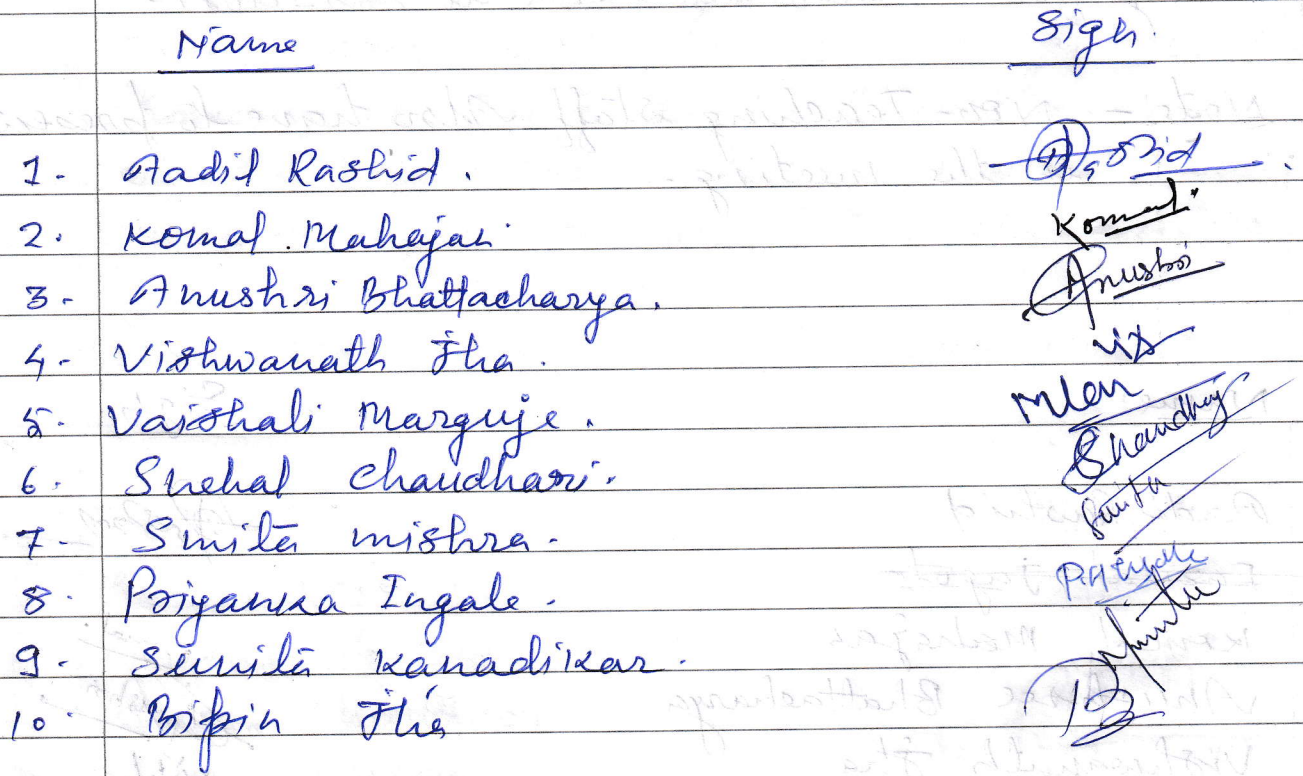 Name Sign.
1. Aadil Rashid.
2. Komal Mahajan Komal
3. Anushri Bhattacharya. Anushri
4. Vishwanath Jha.
5. Vaishali Marguje.
6. Snehal Chaudhari. Chaudhari
7. Smita mishra. Smita
8. Priyanka Ingale.
9. Sunita Kanadikar.
10. Bipin Jha